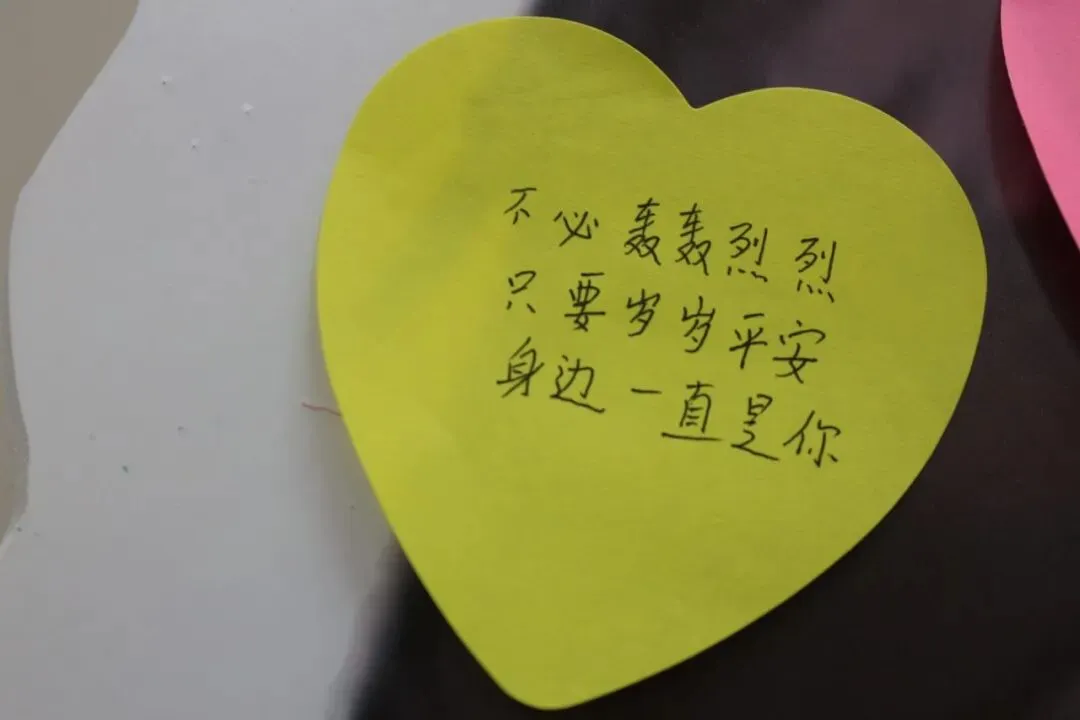 不必轰轰烈烈
只要岁岁平安
身边一直是你